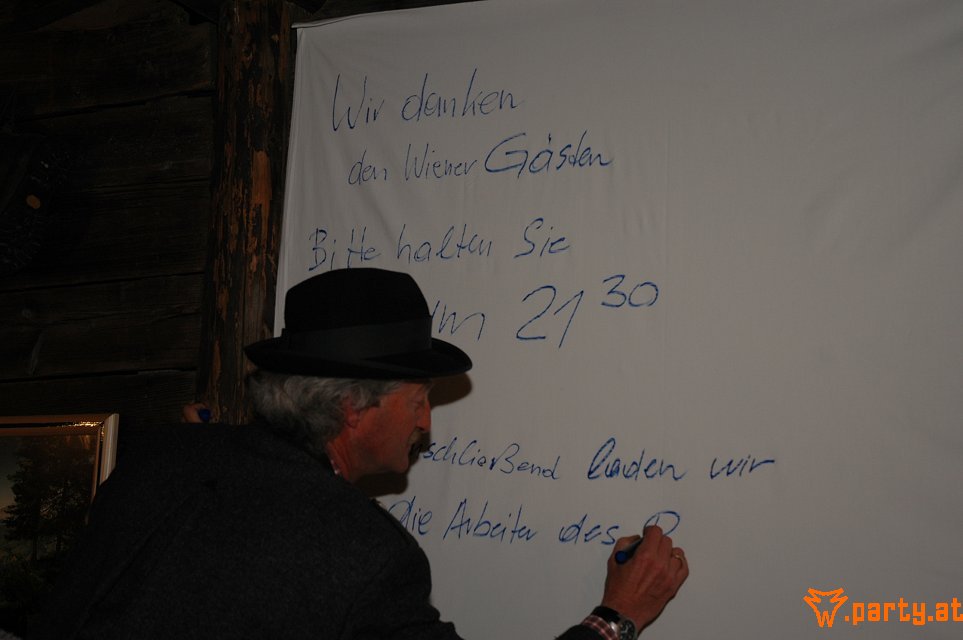 Wir danken
den Wiener Gästen
Bitte halten Sie
um 21 30
schließend laden wir
die Arbeiter des
.party.at